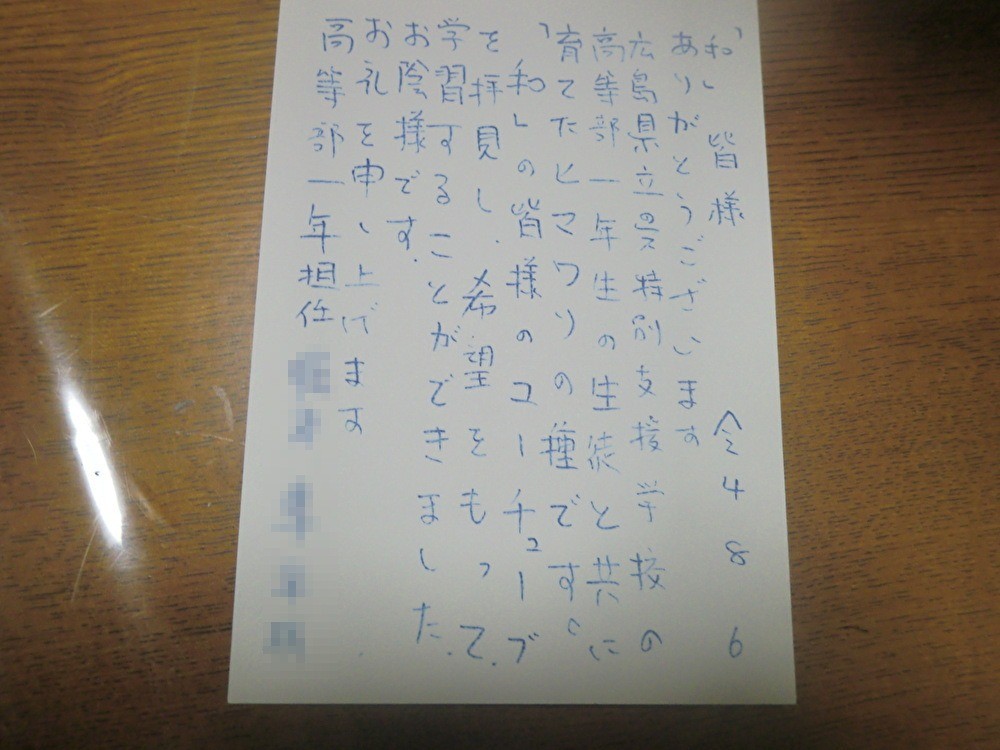 「和」皆様 令4 8 6
ありがとうございます
広島県立呉特別支援学校の
高等部一年生の生徒と共に
育てたヒマワリの種です。
「和」の皆様のユーチューブ
を拝見し、希望をもって、
学習することができました。
お陰様です。
お礼を申し上げます
高等部一年担任